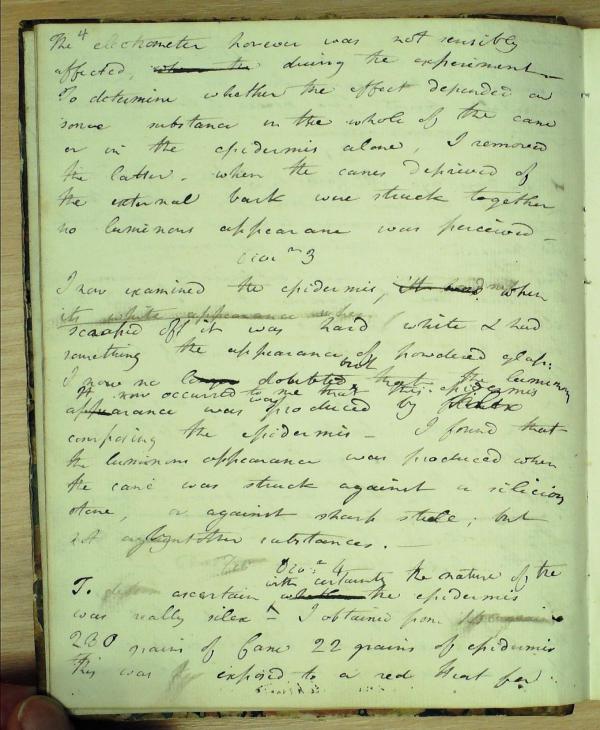 The 4 electrometer however was not sensibly
affected, when the during the experiment_
To determine whether the effect depended on
some substance in the whole of the cane
or in the epidermis alone, I removed
the latter. when the canes deprived of
the external bark were struck together
no luminous appearance was perceived_
Div:n 3
I now examined the epidermis, it had when
its white appearance when
scraped off it was hard white & had
something the appearance of powdered glass.
I now no longer doubted but that the luminous
It now occurred to me that this epidermis
appearance was produced by silex
composing the epidermis_ I found that
the luminous appearance was produced when
the cane was struck against a silicious
stone, or against sharp steele; but
not against other substances._
Div:n 4
To ascertain with certainty whether the nature of the
the epidermis
was really silex ^ I obtained from
230 grains of Cane 22 grains of epidermis
this was exposed to a red Heat for